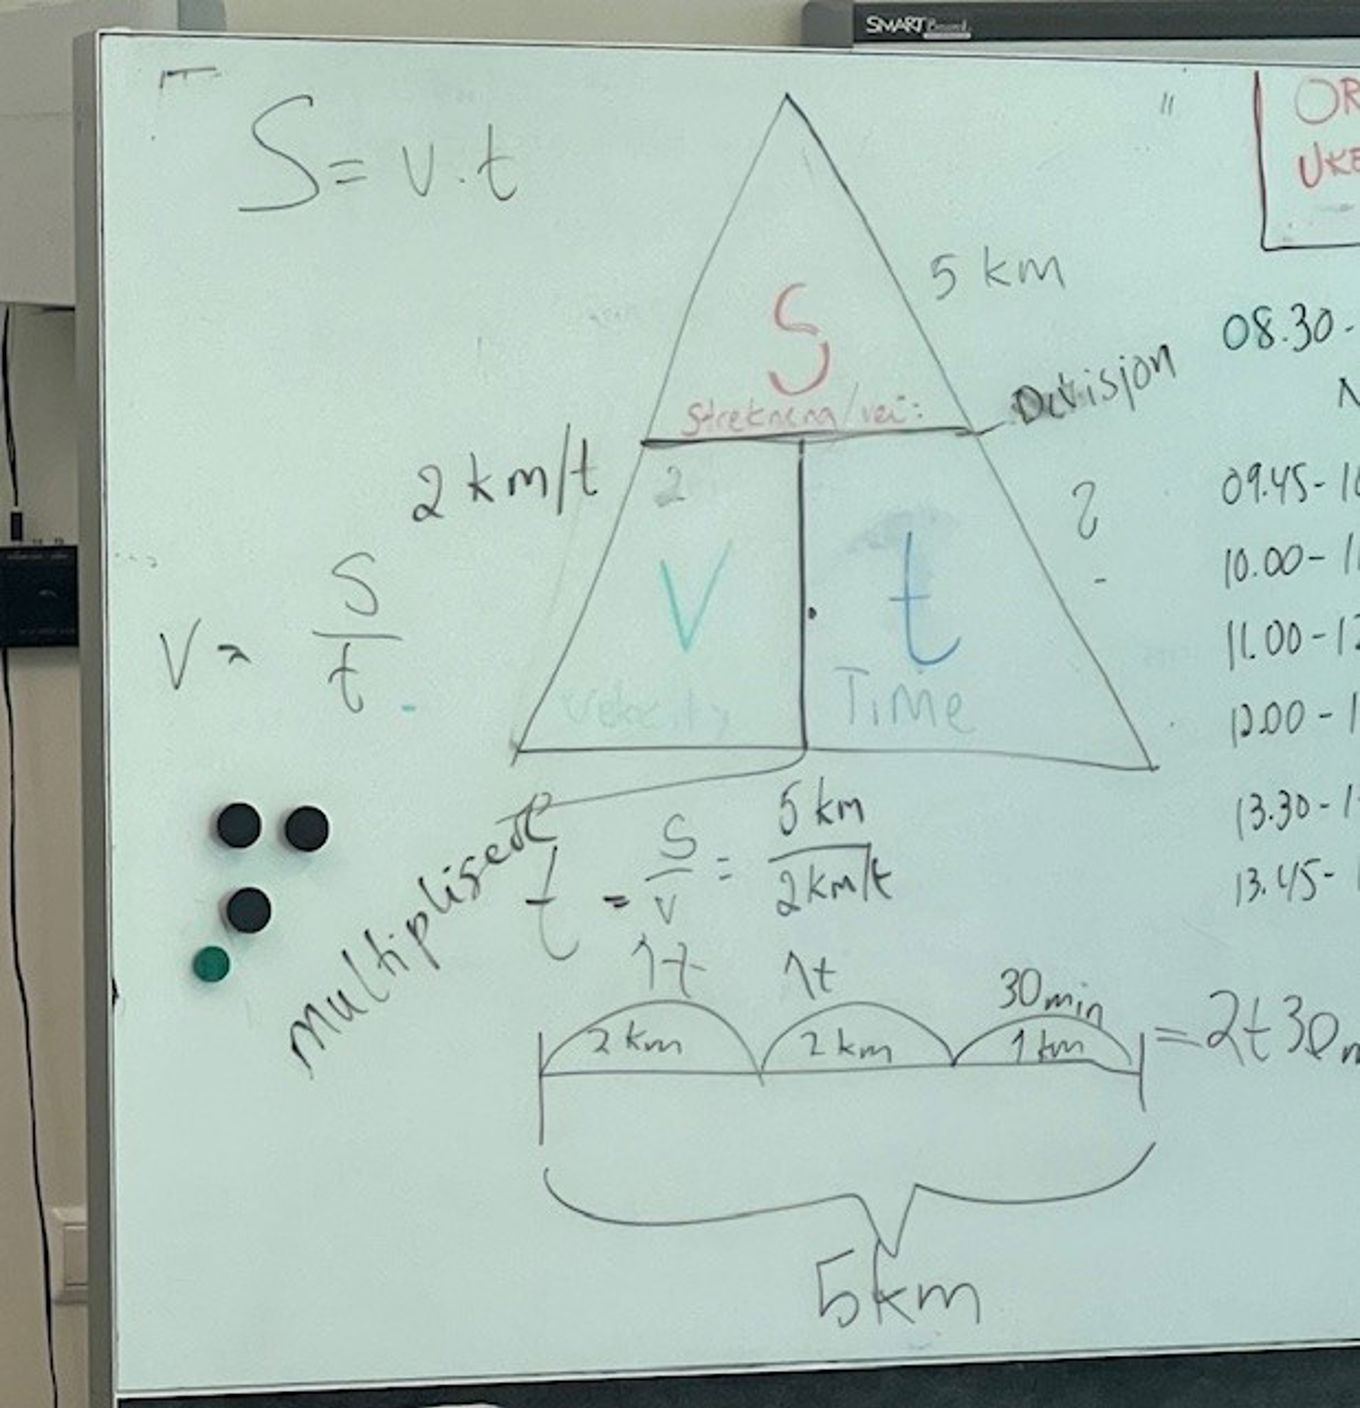 SMART Board
S = v · t
OR
UKE
5 km
S
Strekning/vei:
Divisjon
2 km/t
2
?
V = S/t
V
t
Velocity
Time
Multiplisere
t = S/V = 5 km/2 km/t
1t 1t 30 min
2 km 2 km 1 km = 2t 30 m
5 km
08.30-
N
09.45-10
10.00-1
11.00-12
12.00-1
13.30-1
13.45-1